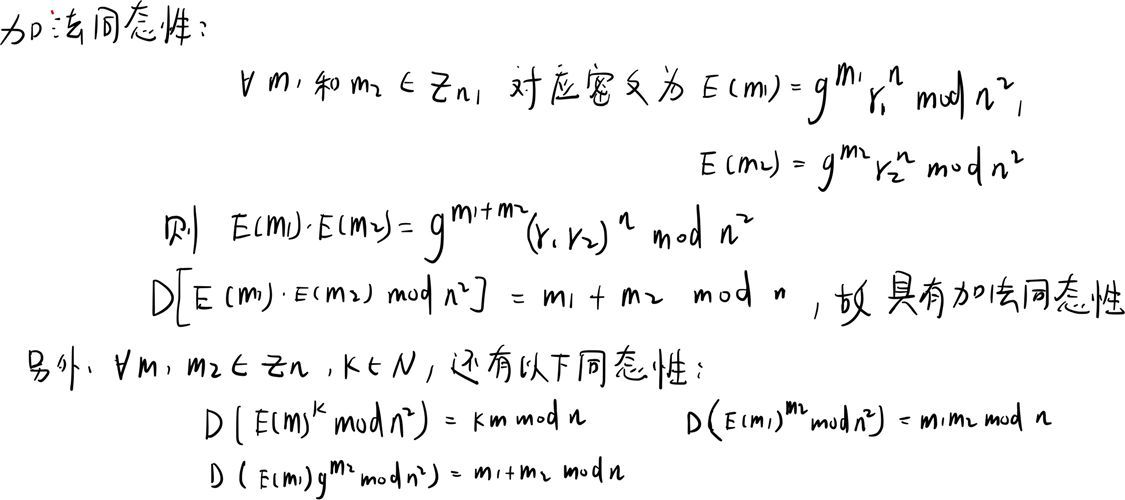 加法同态性：
∀ m₁ 和 m₂ ∈ Zn, 对应密文为 E(m₁) = g^{m₁} r₁^n mod n²,
E(m₂) = g^{m₂} r₂^n mod n²
则 E(m₁)·E(m₂) = g^{m₁+m₂}(r₁r₂)^n mod n²
D[E(m₁)·E(m₂) mod n²] = m₁ + m₂ mod n , 故具有加法同态性
另外、∀ m₁ m₂ ∈ Zn , K ∈ N , 还有以下同态性：
D[E(m)^K mod n²) = Km mod n D(E(m₁)^{m₂} mod n²) = m₁m₂ mod n
D (E(m₁)g^{m₂} mod n²) = m₁+m₂ mod n